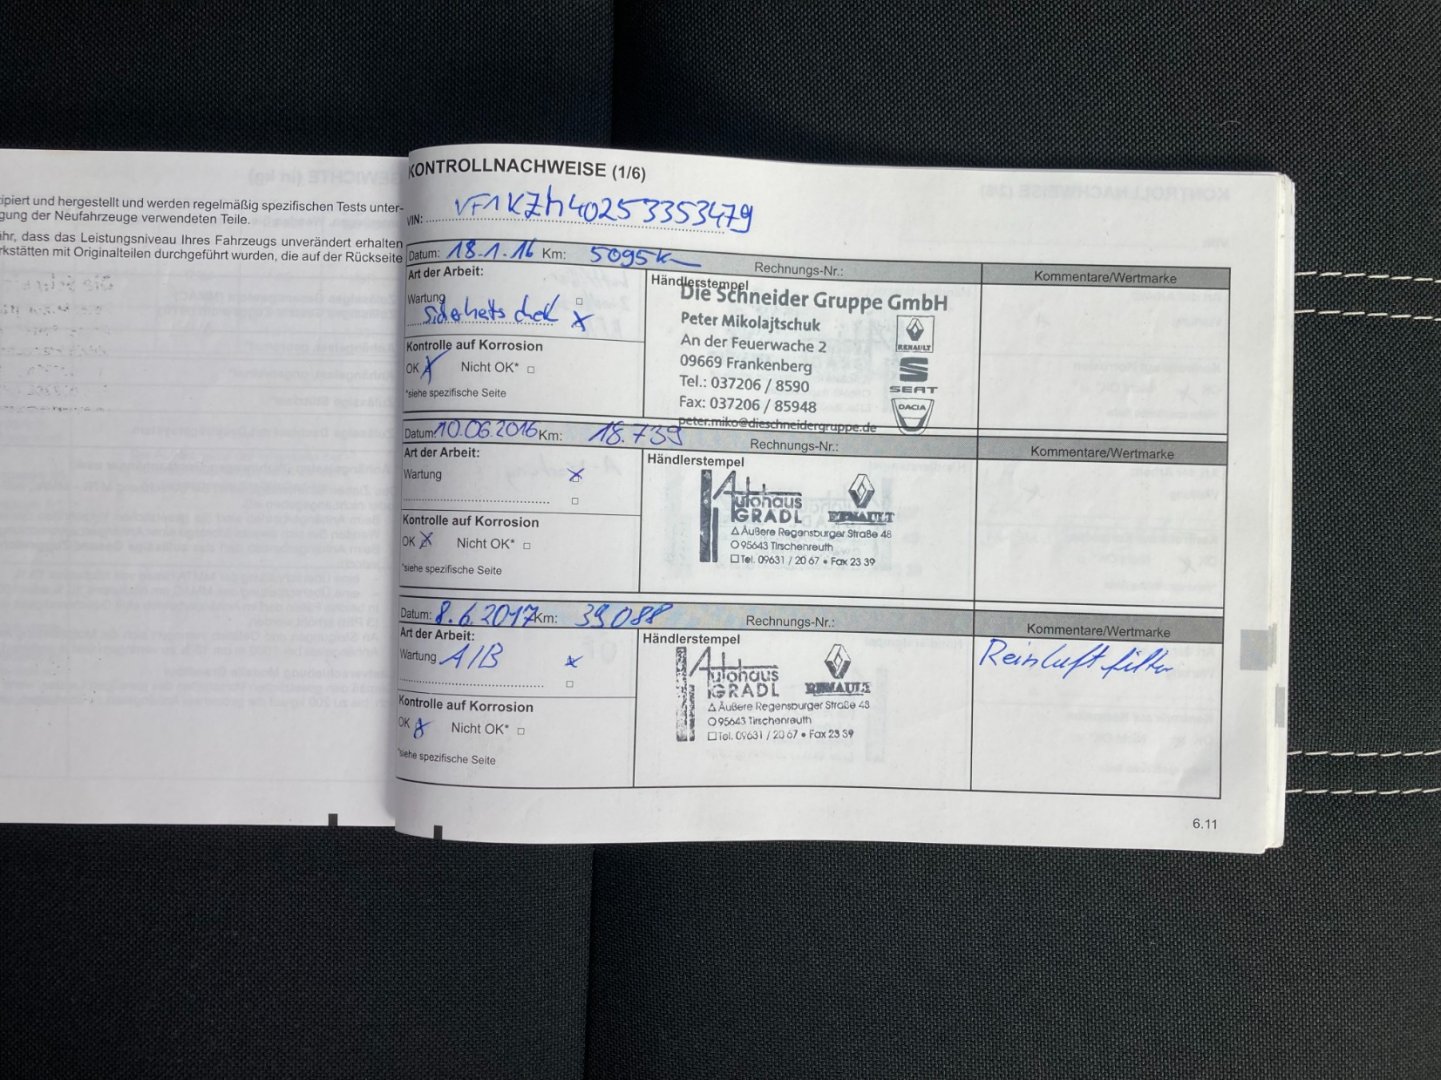 zipiert und hergestellt und werden regelmäßig spezifischen Tests unter-
gung der Neufahrzeuge verwendeten Teile.
ahr, dass das Leistungsniveau Ihres Fahrzeugs unverändert erhalten
rkstätten mit Originalteilen durchgeführt wurden, die auf der Rückseite
KONTROLLNACHWEISE (1/6)
VIN: VF1KZM40253353479
Datum: 18.1.16 Km: 5095km Rechnungs-Nr.: Kommentare/Wertmarke
Art der Arbeit:
Wartung
Sicherheitscheck X
Kontrolle auf Korrosion
OK X Nicht OK*
*siehe spezifische Seite
Händlerstempel
Die Schneider Gruppe GmbH
Peter Mikolajtschuk
An der Feuerwache 2
09669 Frankenberg
Tel.: 037206 / 8590
Fax: 037206 / 85948
peter.miko@dieschneidergruppe.de
RENAULT
SEAT
DACIA
Datum: 10.06.2016 Km: 18.739 Rechnungs-Nr.: Kommentare/Wertmarke
Art der Arbeit:
Wartung X
Kontrolle auf Korrosion
OK X Nicht OK*
*siehe spezifische Seite
Händlerstempel
Autohaus
GRADL
RENAULT
Äußere Regensburger Straße 48
95643 Tirschenreuth
Tel. 09631 / 20 67 • Fax 23 39
Datum: 8.6.2017 Km: 39088 Rechnungs-Nr.: Kommentare/Wertmarke
Art der Arbeit:
Wartung A/B X
Kontrolle auf Korrosion
OK X Nicht OK*
*siehe spezifische Seite
Händlerstempel
Autohaus
GRADL
RENAULT
Äußere Regensburger Straße 48
95643 Tirschenreuth
Tel. 09631 / 20 67 • Fax 23 39
Reinluftfilter
6.11